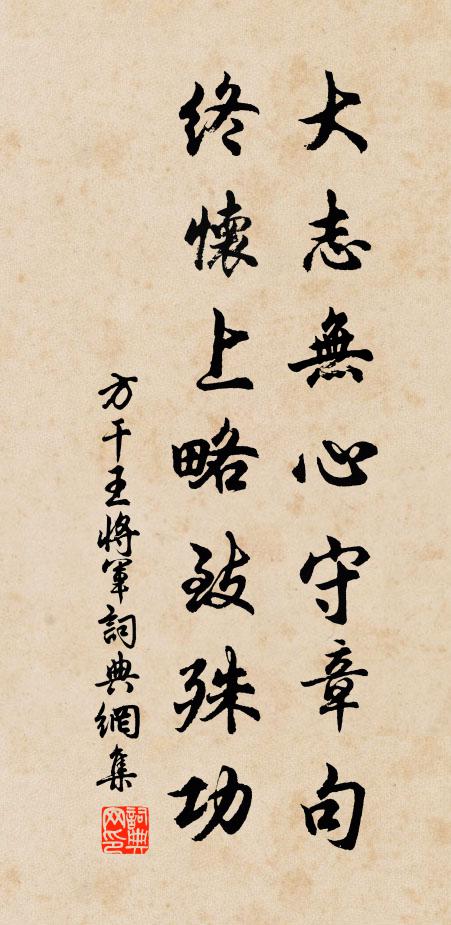 大志無心守章句
終懷上略致殊功
方干王將軍詞典網集
詞典网印